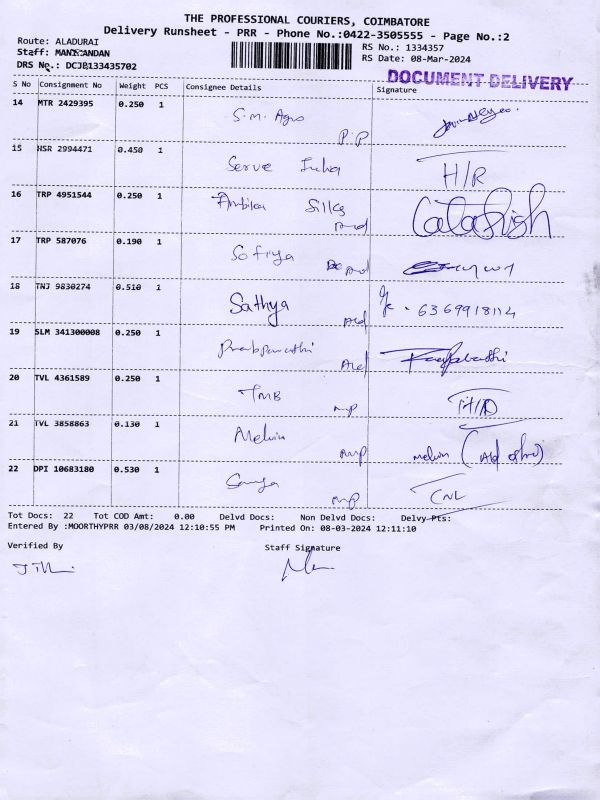 THE PROFESSIONAL COURIERS, COIMBATORE
Delivery Runsheet - PRR - Phone No.:0422-3505555 - Page No.:2
Route: ALADURAI
RS No.: 1334357
Staff: MANIKANDAN
RS Date: 08-Mar-2024
DRS No.: DCJB133435702
DOCUMENT DELIVERY
S No Consignment No Weight PCS Consignee Details Signature
14 MTR 2429395 0.250 1 S.M. Agro P.P
15 NSR 2994471 0.450 1 Serve India H/R
16 TRP 4951544 0.250 1 Ambika Silks
17 TRP 587076 0.190 1 Sofiya
18 TNJ 9830274 0.510 1 Sathya 6369918114
19 SLM 341300008 0.250 1
20 TVL 4361589 0.250 1 TMB
21 TVL 3858863 0.130 1 Melvin melvin
22 DPI 10683180 0.530 1 CNL
Tot Docs: 22 Tot COD Amt: 0.00 Delvd Docs: Non Delvd Docs: Delvy-Pts:
Entered By :MOORTHYPRR 03/08/2024 12:10:55 PM Printed On: 08-03-2024 12:11:10
Verified By Staff Signature